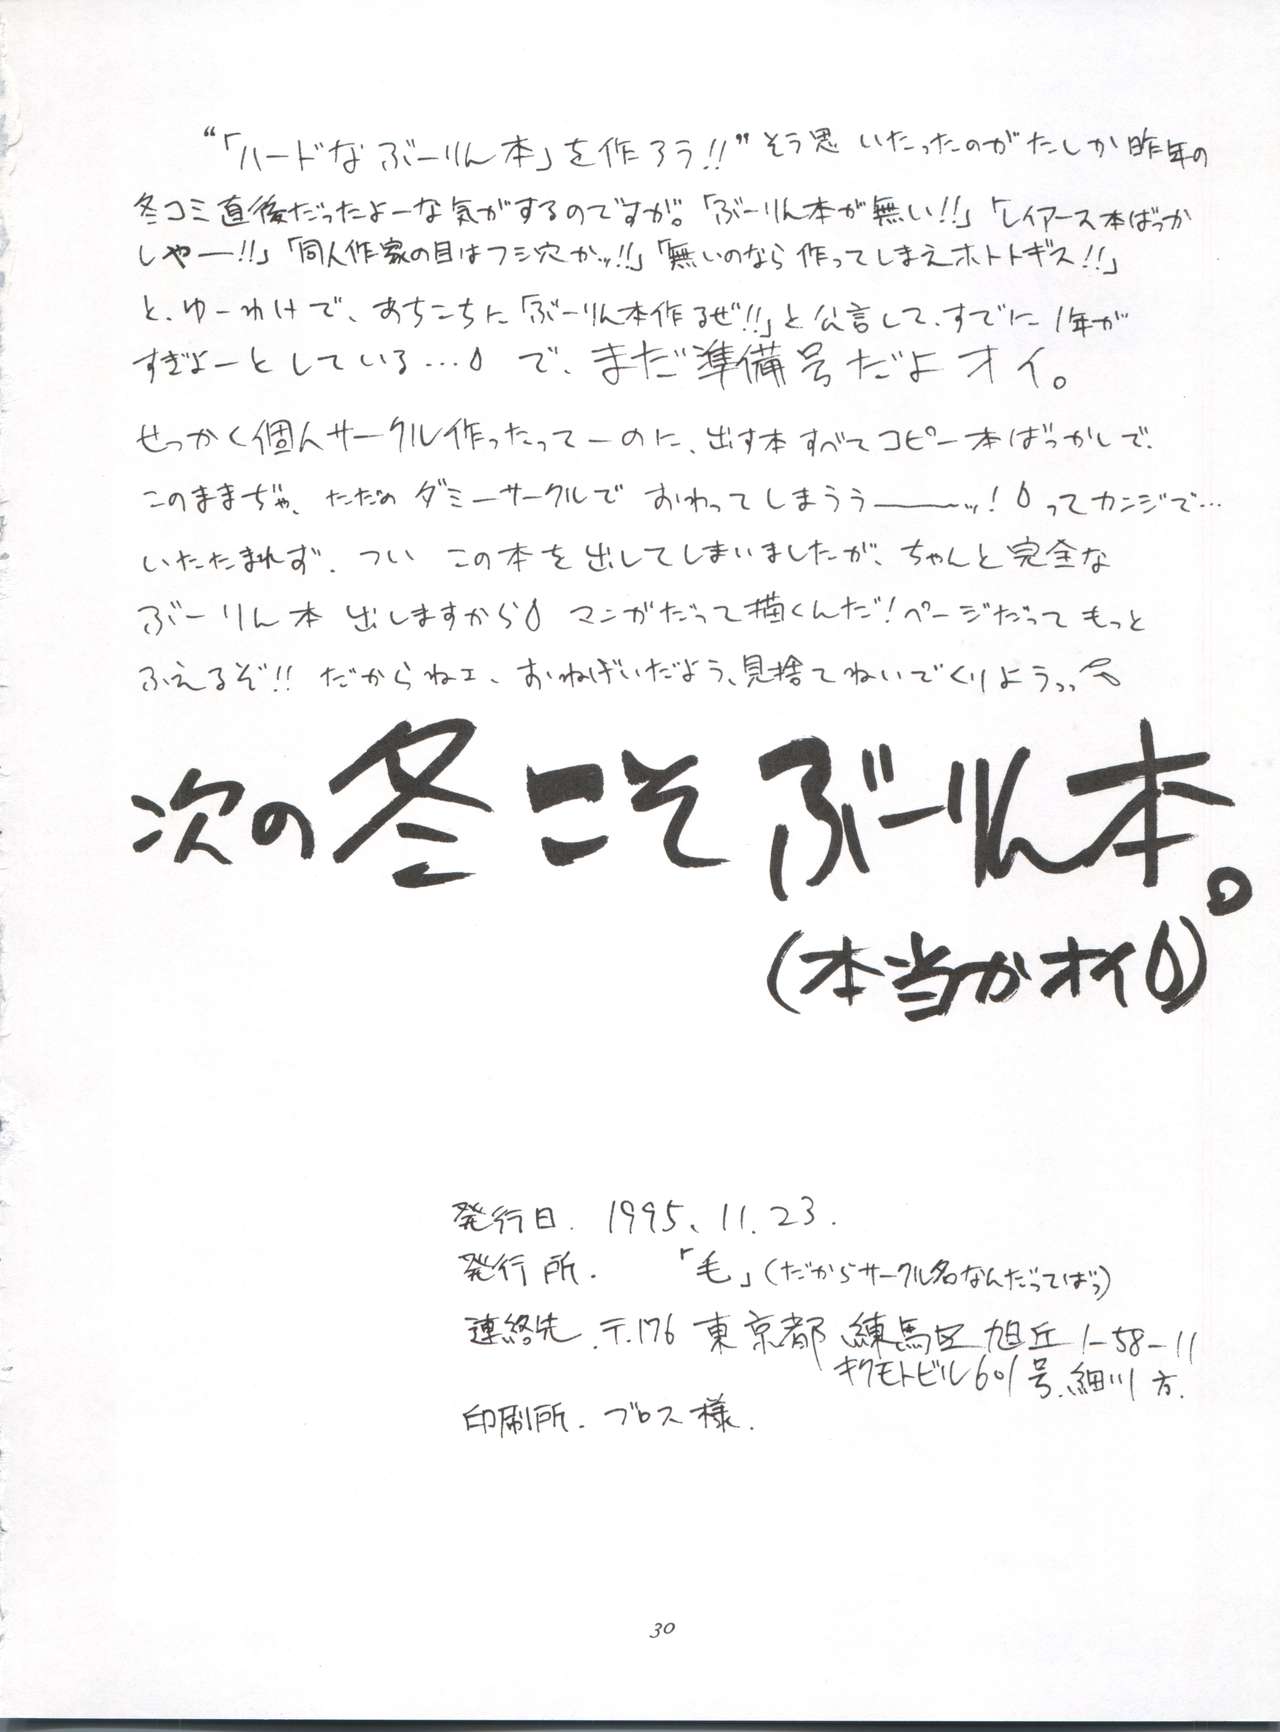 “「ハードな ぶーりん本」を作ろう!!”そう思 いたったのがたしか昨年の
冬コミ直後だったよーな気がするのですが。「ぶーりん本が無い!!」「レイアース本ばっか
しやー!!」「同人作家の目はフシ穴かッ!!」「無いのなら 作ってしまえホトトギス!!」
と、ゆーわけで、あちこちに「ぶーりん本作るぜ!!」と公言して、すでに1年が
すぎよーとしている… で、まだ準備号だよオイ。
せっかく個人サークル作ったってーのに、出す本すべてコピー本ばっかしで、
このままぢゃ、ただの ダミーサークルで おわってしまうぅ――ッ! ってカンジで…
いたたまれず、つい この本を出してしまいましたが、ちゃんと完全な
ぶーりん本 出しますから マンガだって描くんだ!ページだって もっと
ふえるぞ!! だからねェ、おねげいだよう、見捨てねいでくりようっっ
次の冬こそぶーりん本。
(本当かオイ)
発行日. 1995、11.23.
発行所. 「毛」(だからサークル名なんだってばっ)
連絡先. 〒.176 東京都 練馬区 旭丘 1-58-11
キクモトビル601号.細川方.
印刷所. ブロス様.
30